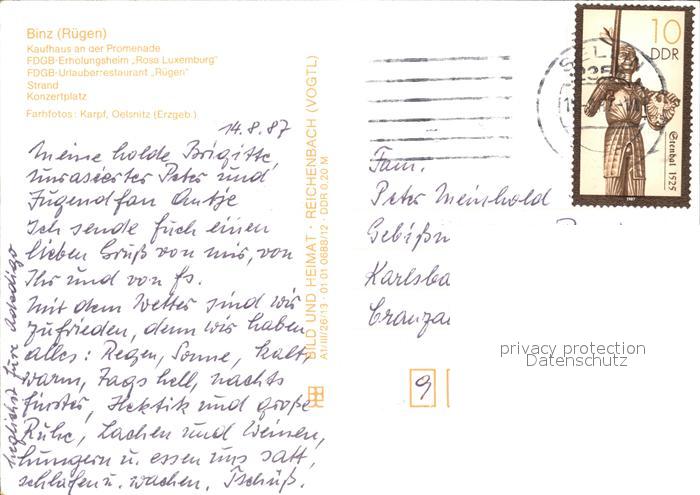 Binz (Rügen)
Kaufhaus an der Promenade
FDGB-Erholungsheim „Rosa Luxemburg"
FDGB-Urlauberrestaurant „Rügen"
Strand
Konzertplatz
Farbfotos: Karpf, Oelsnitz (Erzgeb.)
14.8.87
Meine holde Brigitte,
unrasierter Peter und
Jugendfan Antje
Ich sende Euch einen
lieben Gruß von mir, von
Ihr und von Es.
Mit dem Wetter sind wir
zufrieden, denn wir haben
alles: Regen, Sonne, kalt,
warm, Tags hell, nachts
finster, Hektik und große
Ruhe, Lachen und Weinen,
hungern u. essen uns satt,
schlafen u. wachen. Tschüß.
BILD UND HEIMAT · REICHENBACH (VOGTL)
A1/III/26/13 · 01 01 0683/12 · DDR 0,20 M
10
DDR
Stendal 1525
1987
Fam.
Peter Meinhold
Karlsba
Cranza
9
privacy protection
Datenschutz